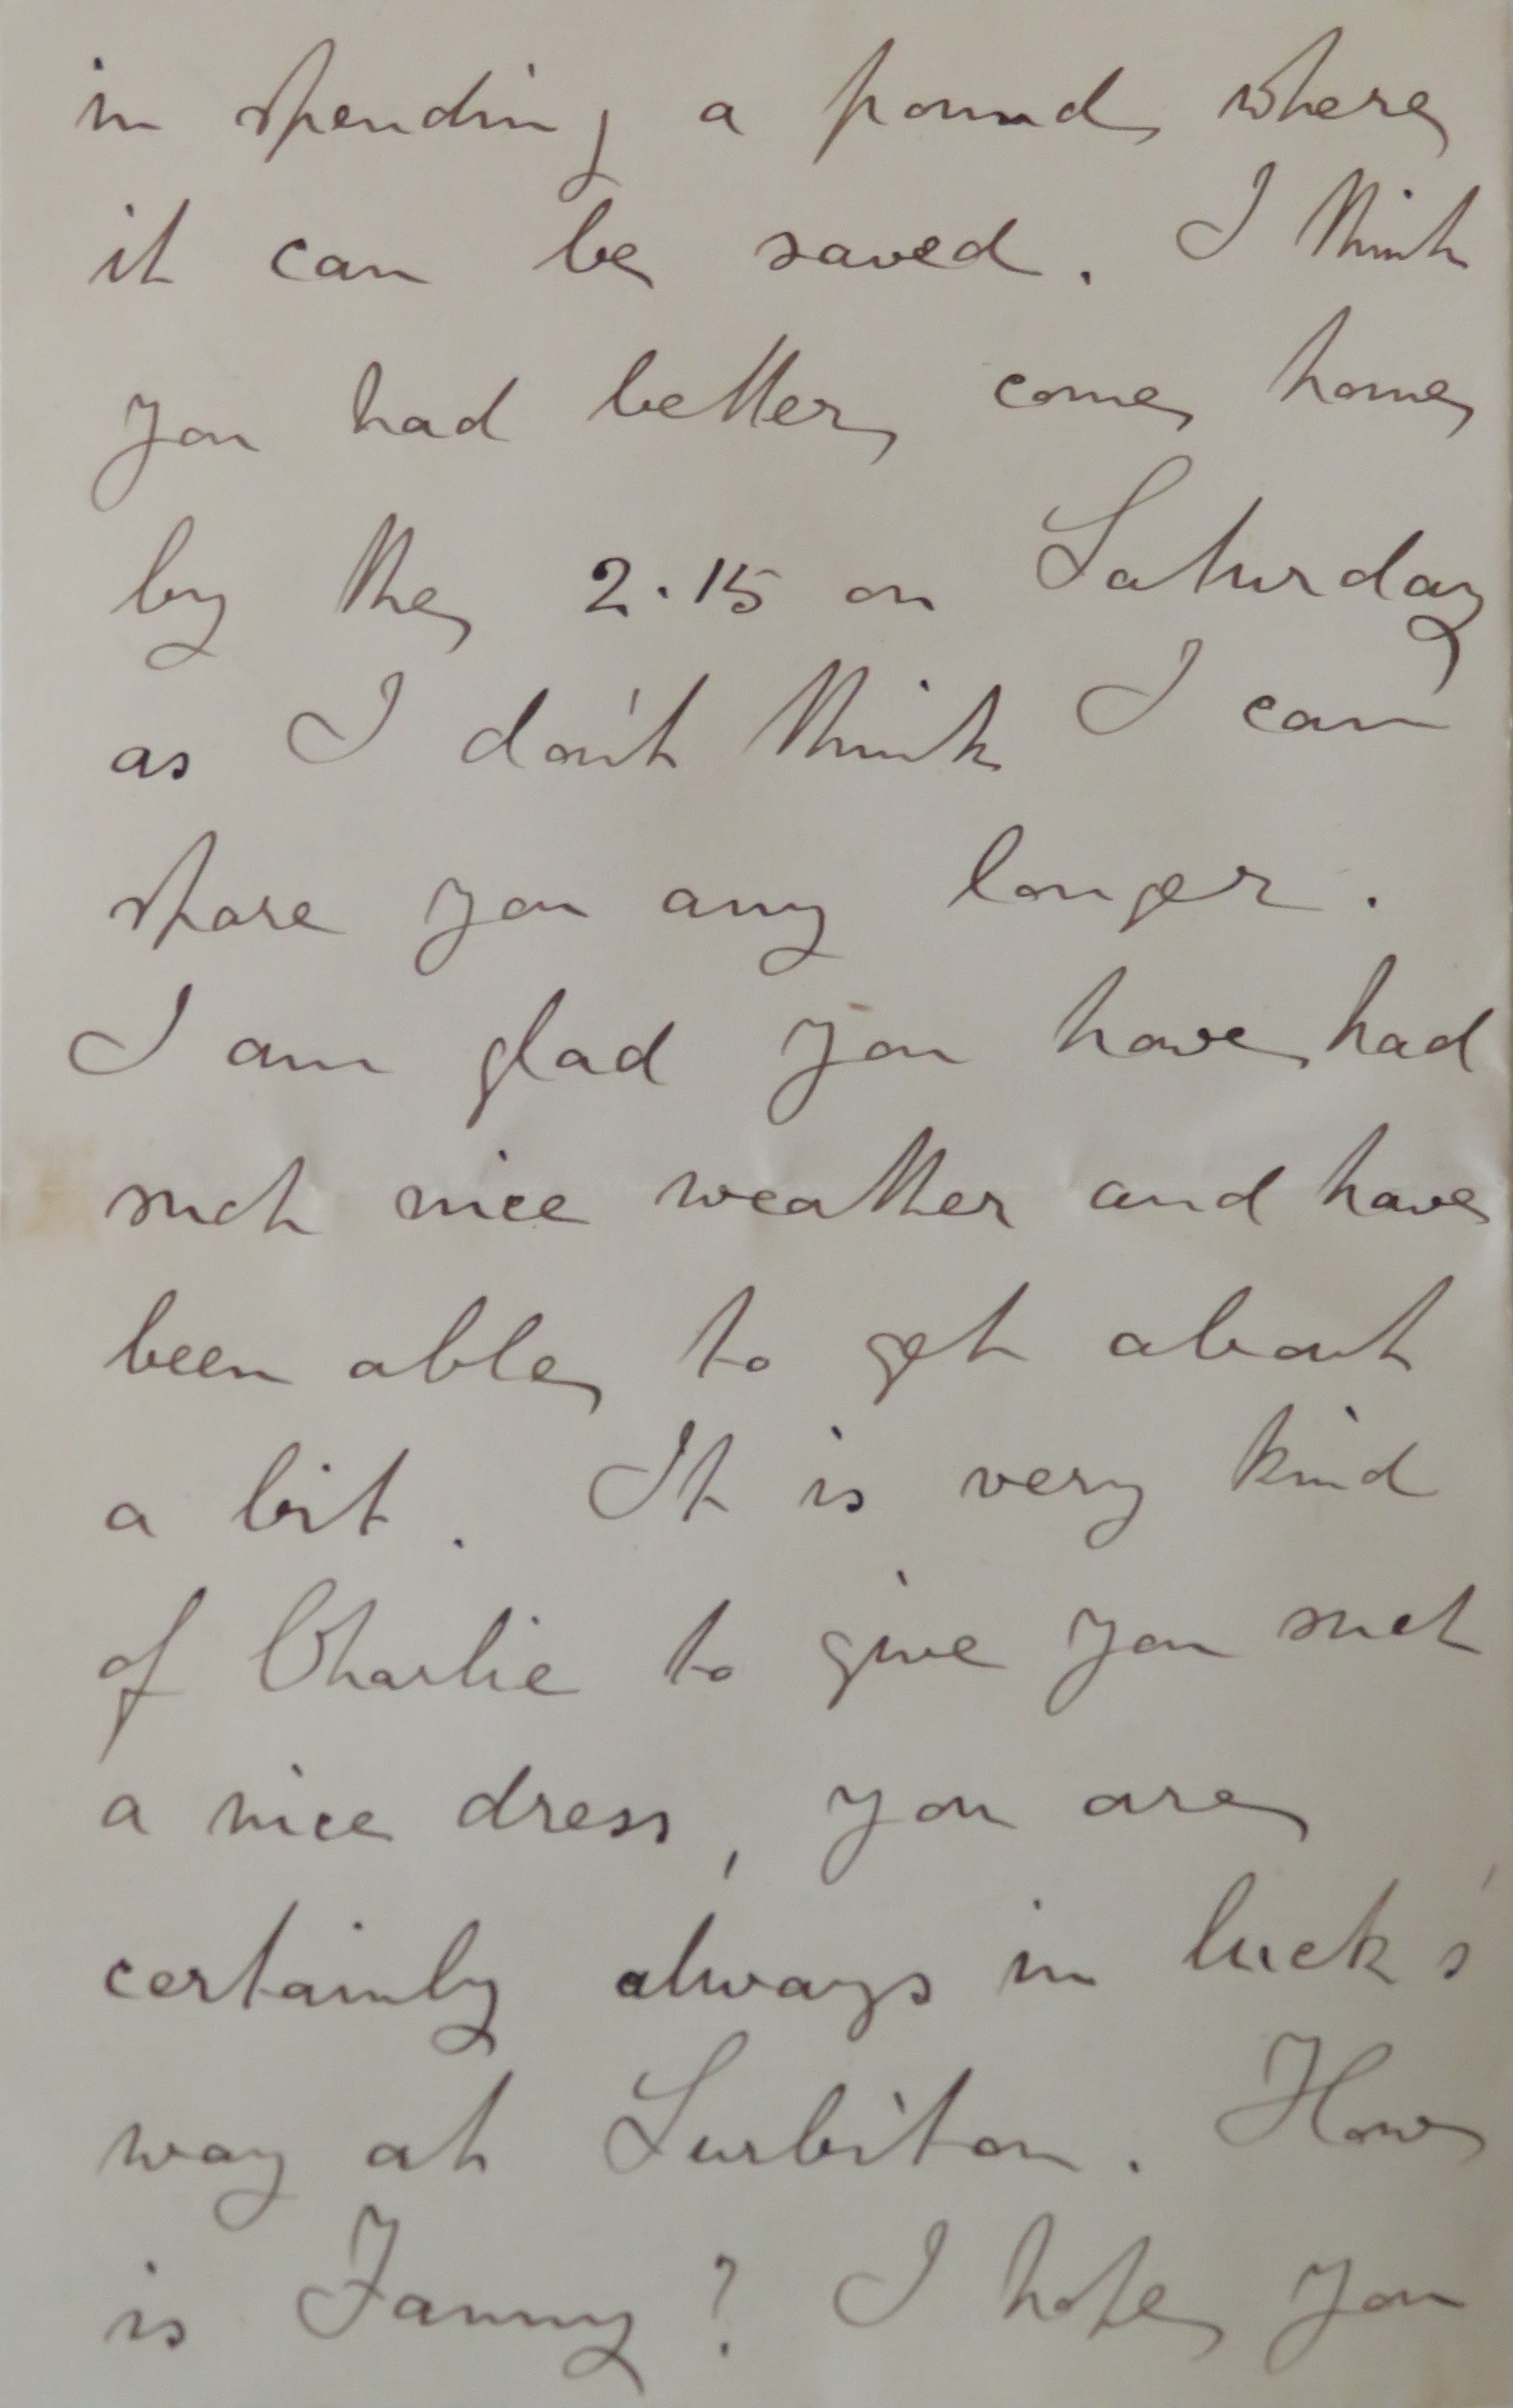 in spending a pound where
it can be saved. I think
you had better come home
by the 2.15 on Saturday
as I don't think I can
spare you any longer.
I am glad you have had
such nice weather and have
been able to get about
a bit. It is very kind
of Charlie to give you such
a nice dress, you are
certainly always in luck's
way at Surbiton. How
is Fanny? I hope you